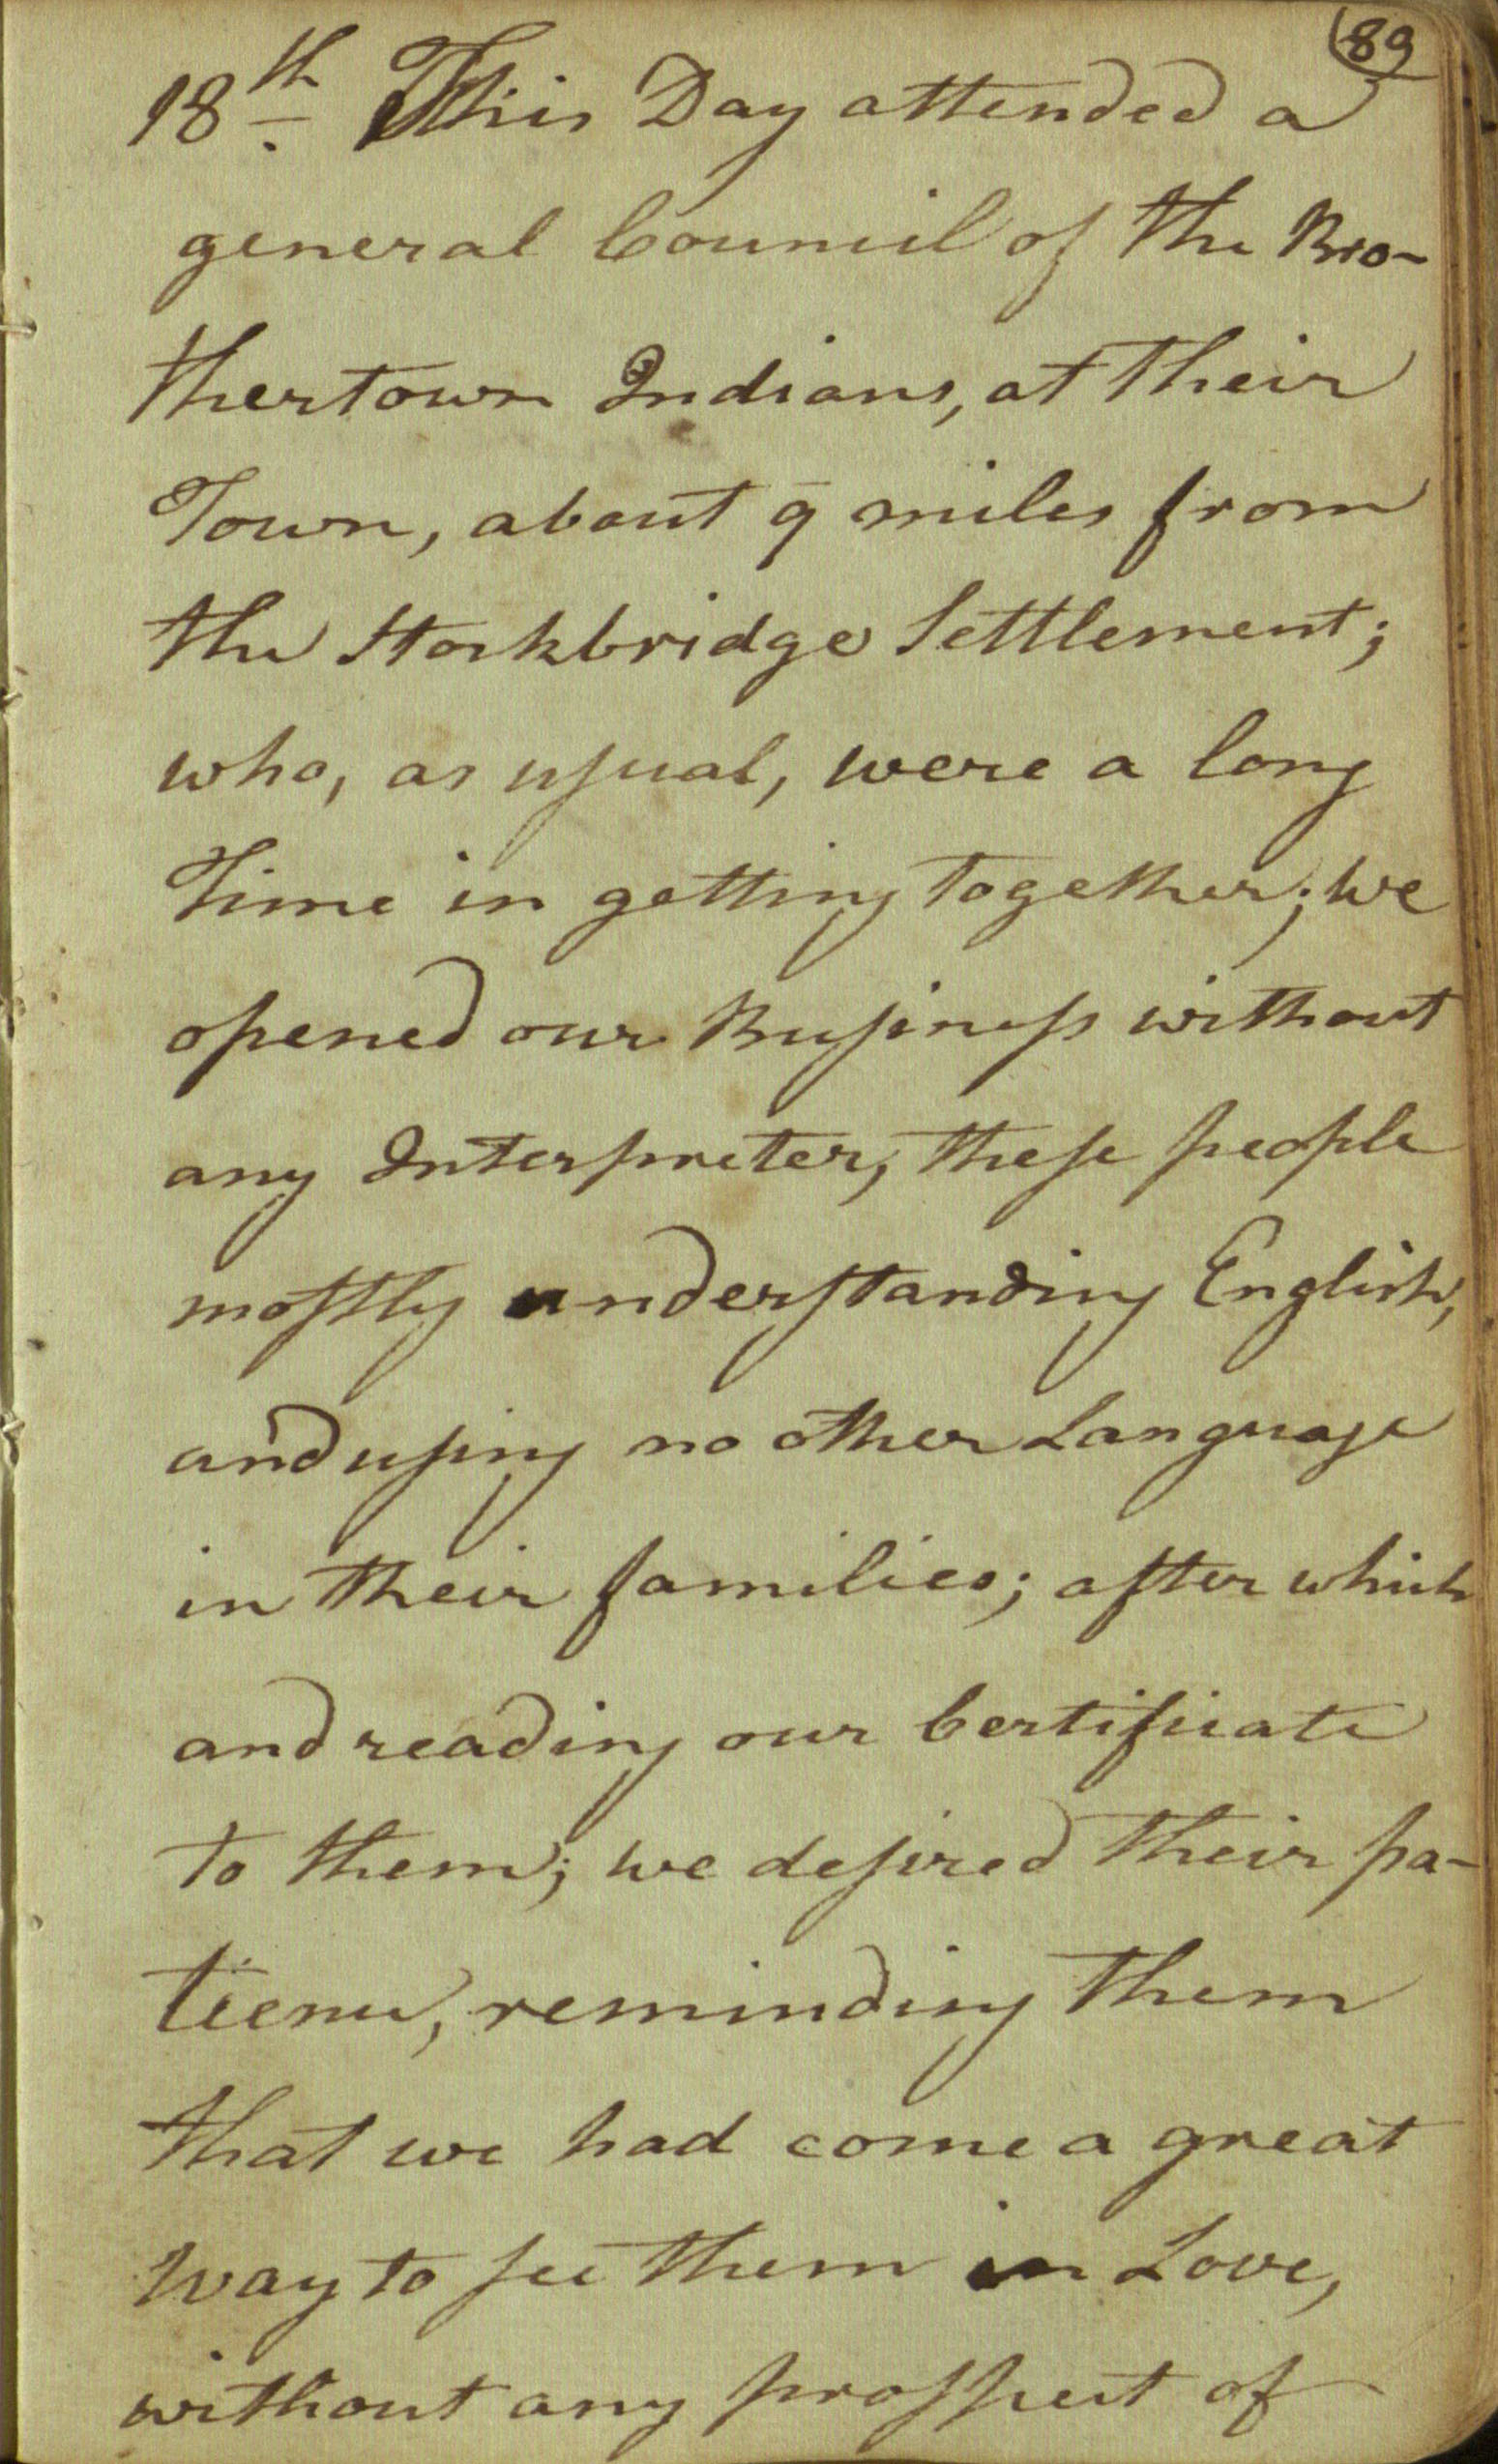 89
18th. This Day attended a
general Council of the Bro-
thertown Indians, at their
Town, about 9 miles from
the Stockbridge Settlement;
who, as uſual, were a long
Time in getting together; we
opened our Buſineſs without
any Interpreter, theſe people
moſtly underſtanding English,
and uſing no other Language
in their families; after which
and reading our Certificate
to them; we deſired their pa-
tience, reminding them
that we had come a great
Way to ſee them in Love,
without any proſpect of